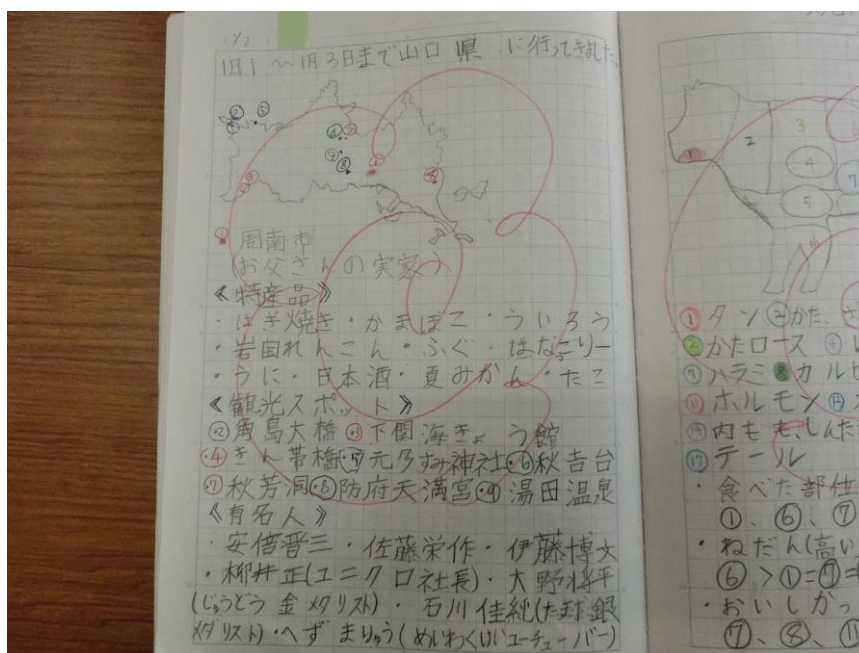 1/7
1月1〜1月3日まで山口県に行ってきました。
周南市
(お父さんの実家)
《特産品》
・はぎ焼き・かまぼこ・ういろう
・岩国れんこん・ふぐ・はなっこりー
・うに・日本酒・夏みかん・たこ
《観光スポット》
②角島大橋③下関海きょう館
・④きん帯橋・⑤元乃すみ神社・⑥秋吉台
・⑦秋芳洞・⑧防府天満宮・⑨湯田温泉
《有名人》
・安倍晋三・佐藤栄作・伊藤博文
・柳井正(ユニクロ社長)・大野将平
(じゅうどう金メダリスト)・石川佳純(たっ球銀
メダリスト)・へずまりゅう(めいわくユーチューバー)
①タン②かた、
③かたロース④
⑦ハラミ⑧カルビ
⑪ホルモン⑫
内もも、しんた
⑰テール
・食べた部位
①、⑥、⑦
・ねだん(高い
⑥>①=⑦=
・おいしかっ
⑦、⑧、⑪